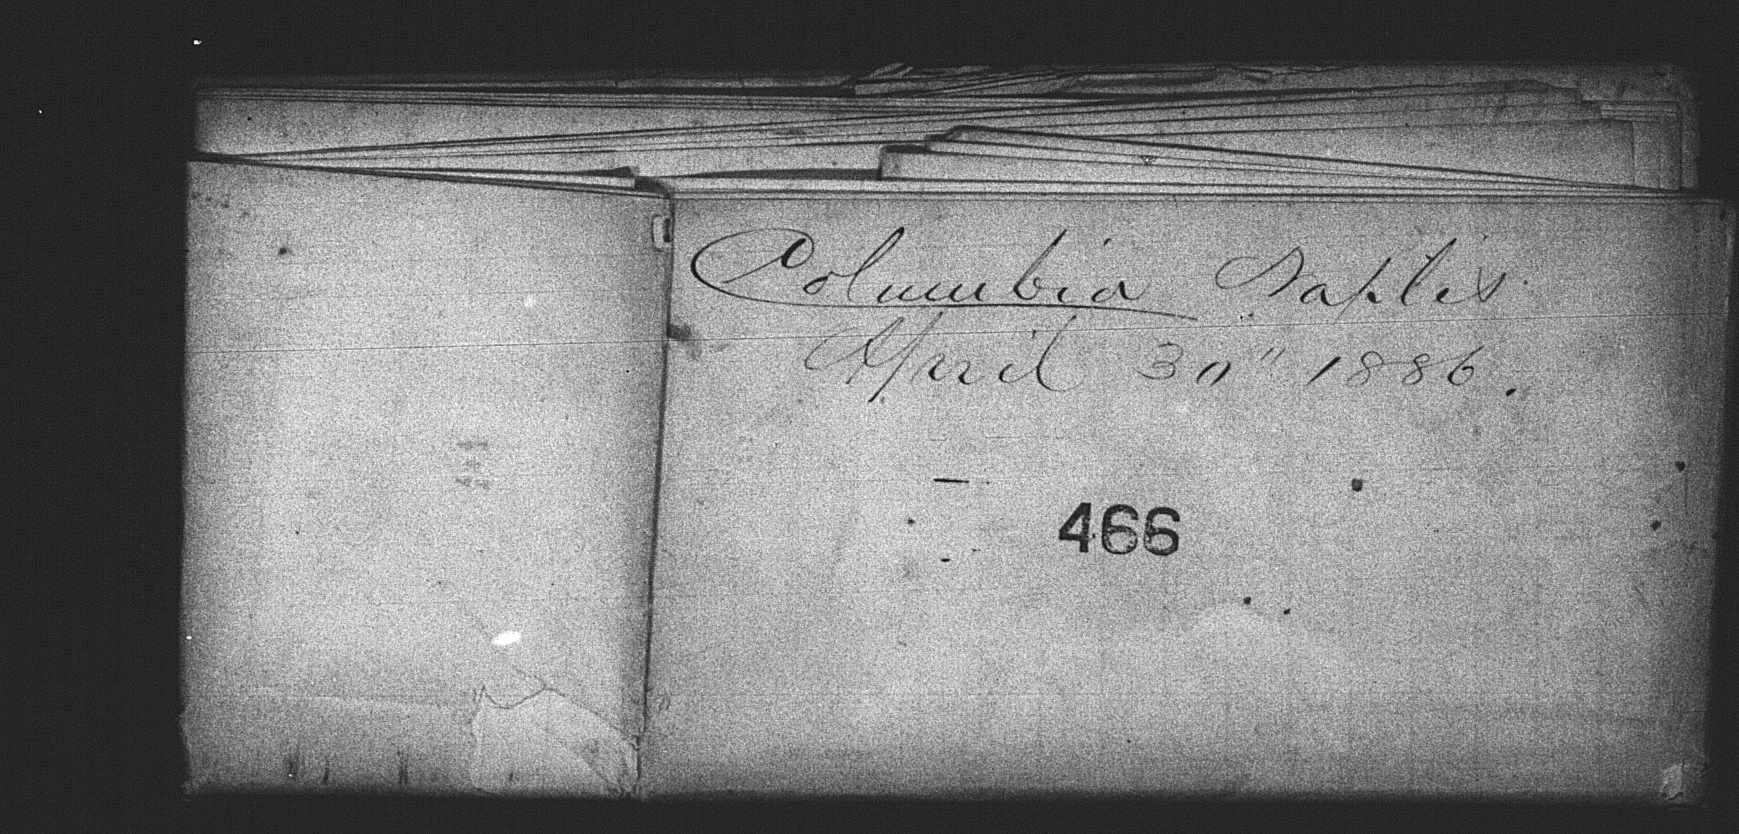 Columbia Naples.
April 30" 1886.
466